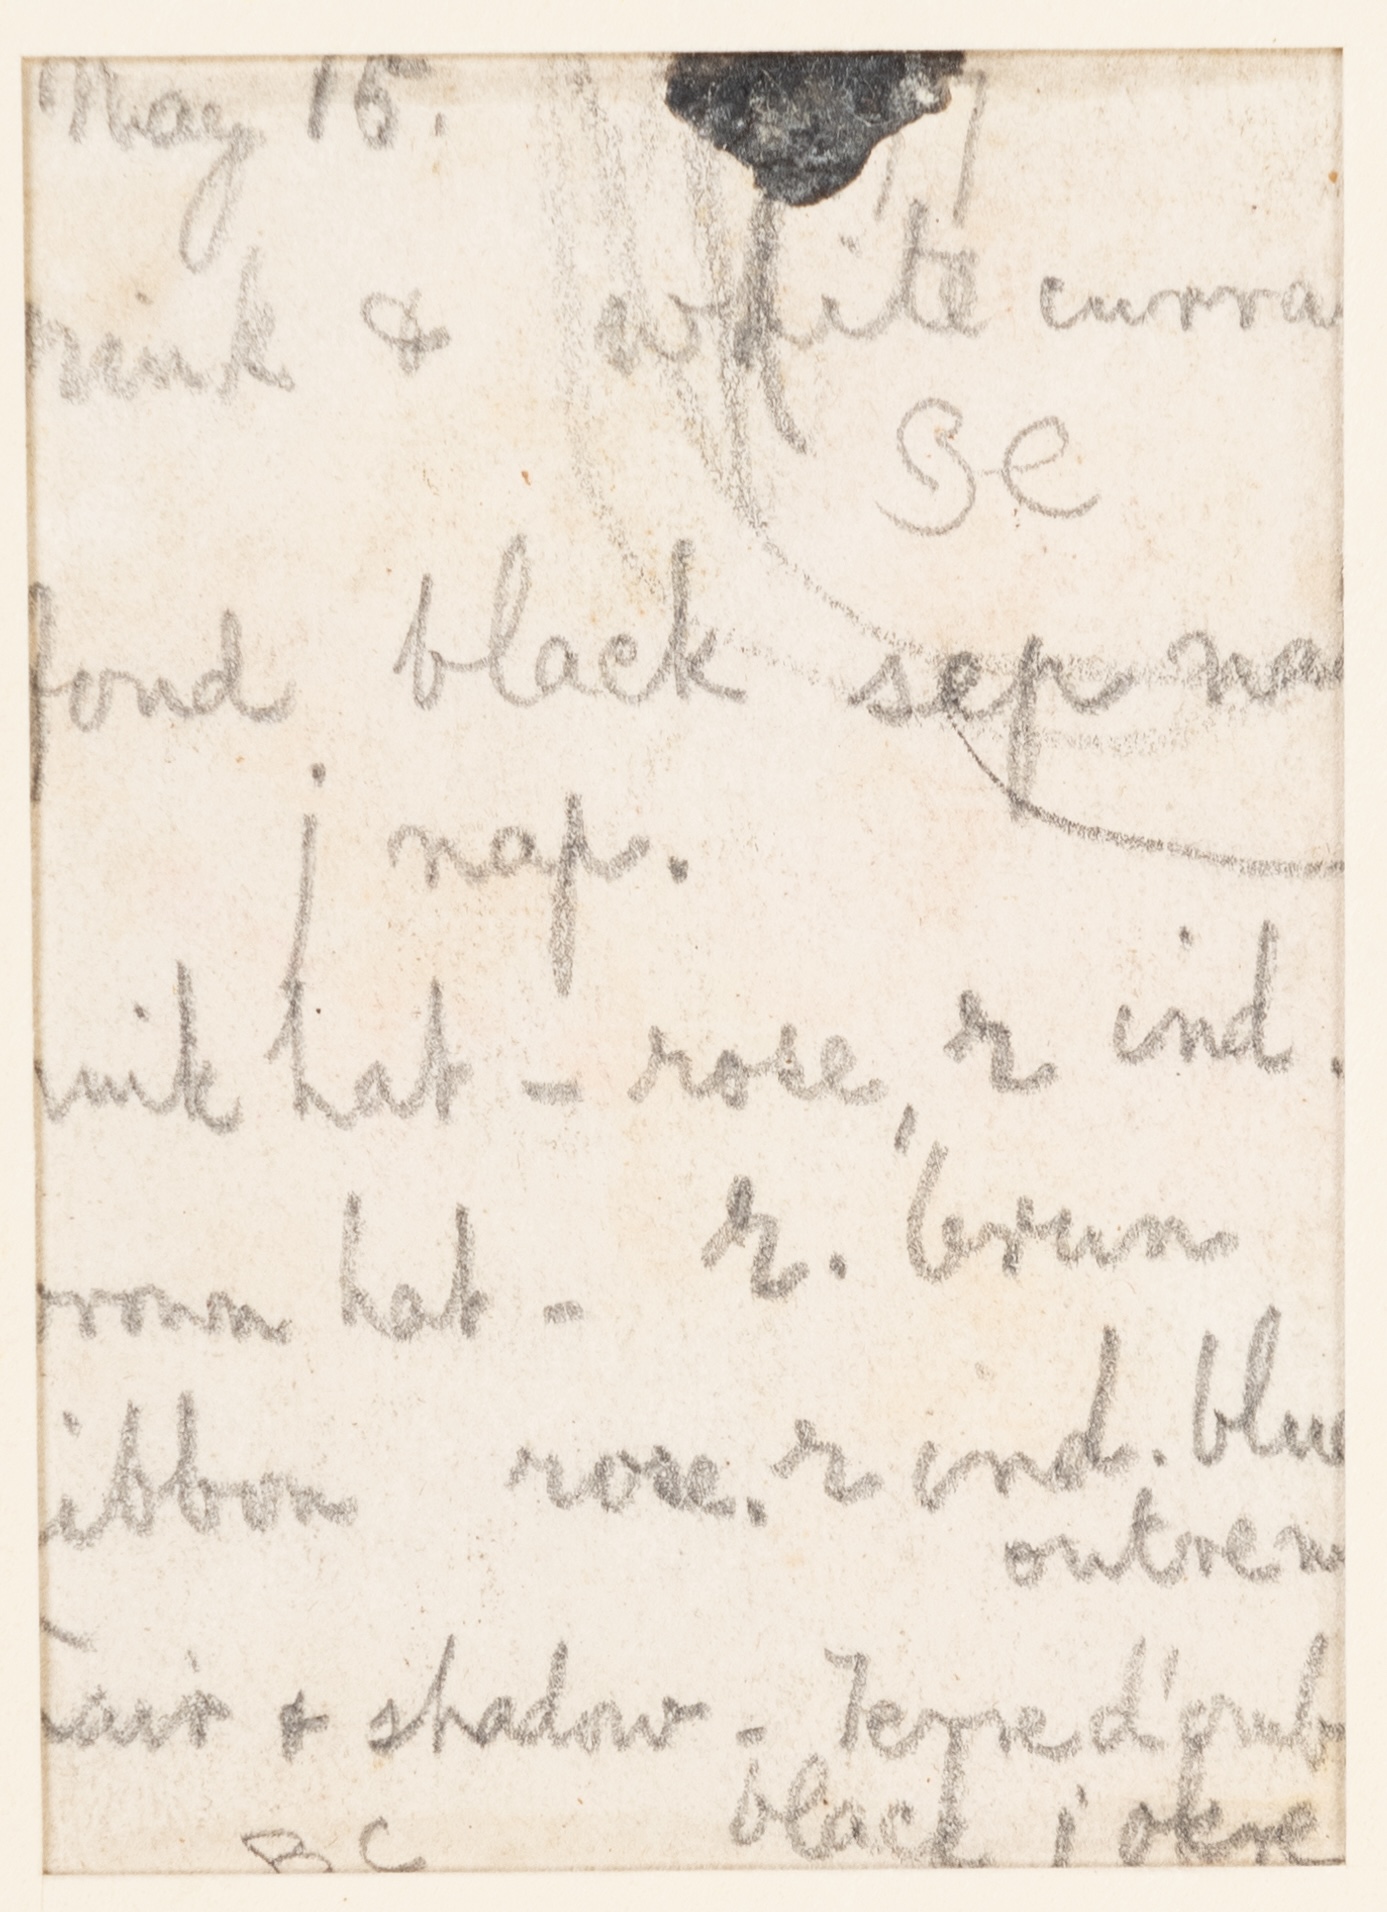 May 15.
rink & white curra
BC
fond black sep na
j nap.
ink hat - rose, r ind.
rown hat - r. brun
ibbon rose. r ind. blue
outrem
air & shadow - Terre d'omb
black j okre
BC